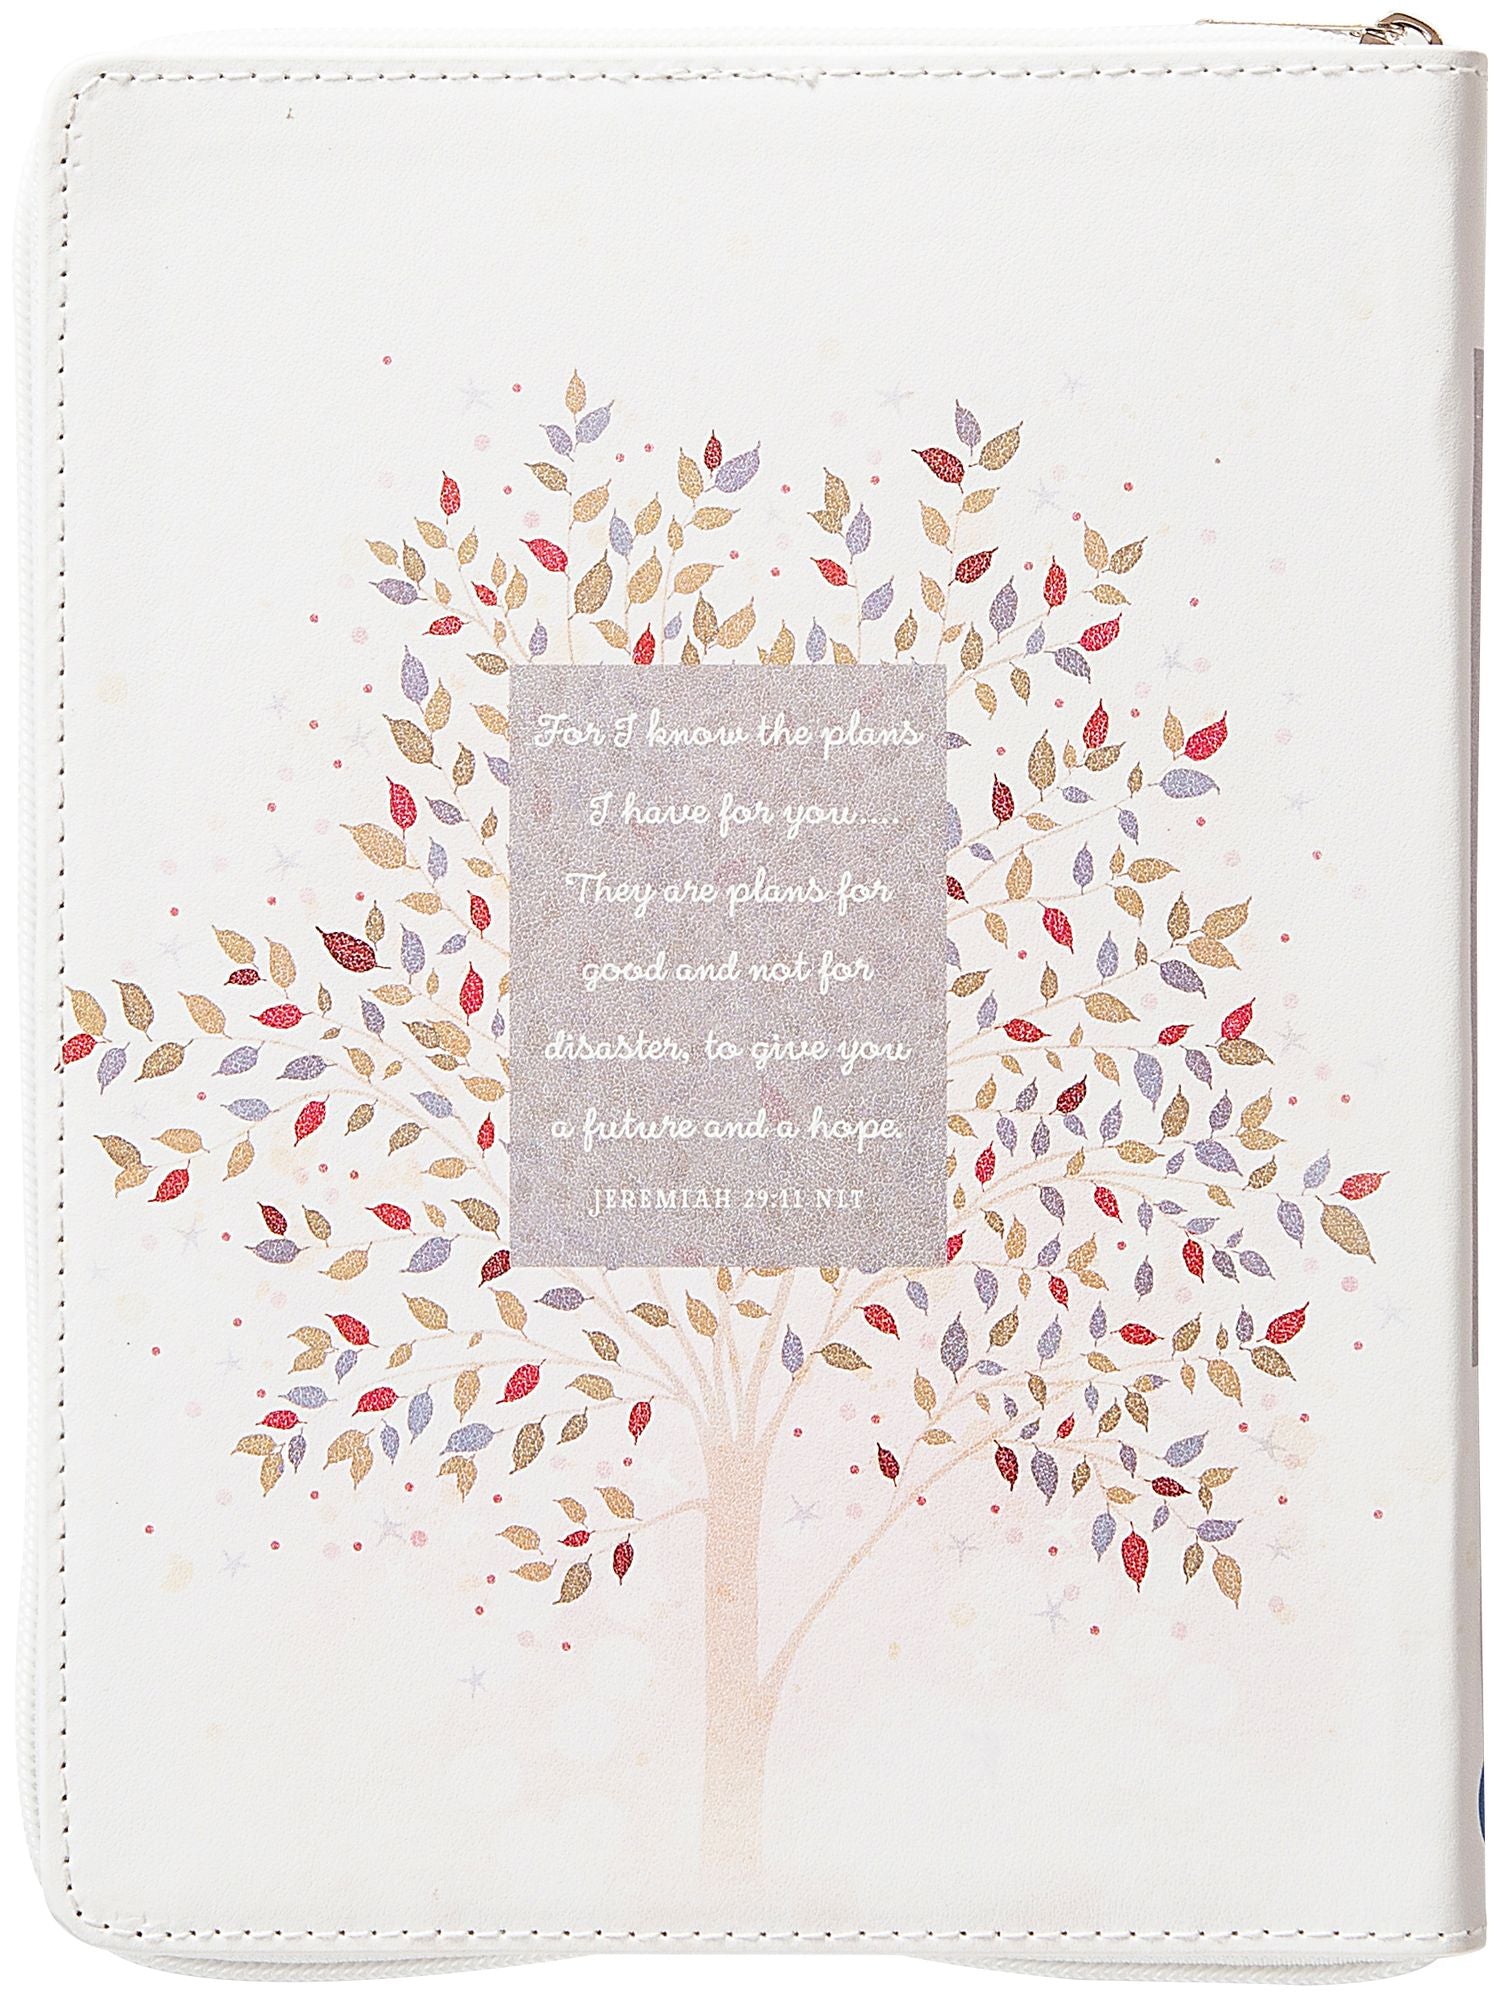 For I know the plans
I have for you....
They are plans for
good and not for
disaster, to give you
a future and a hope.
JEREMIAH 29:11 NLT